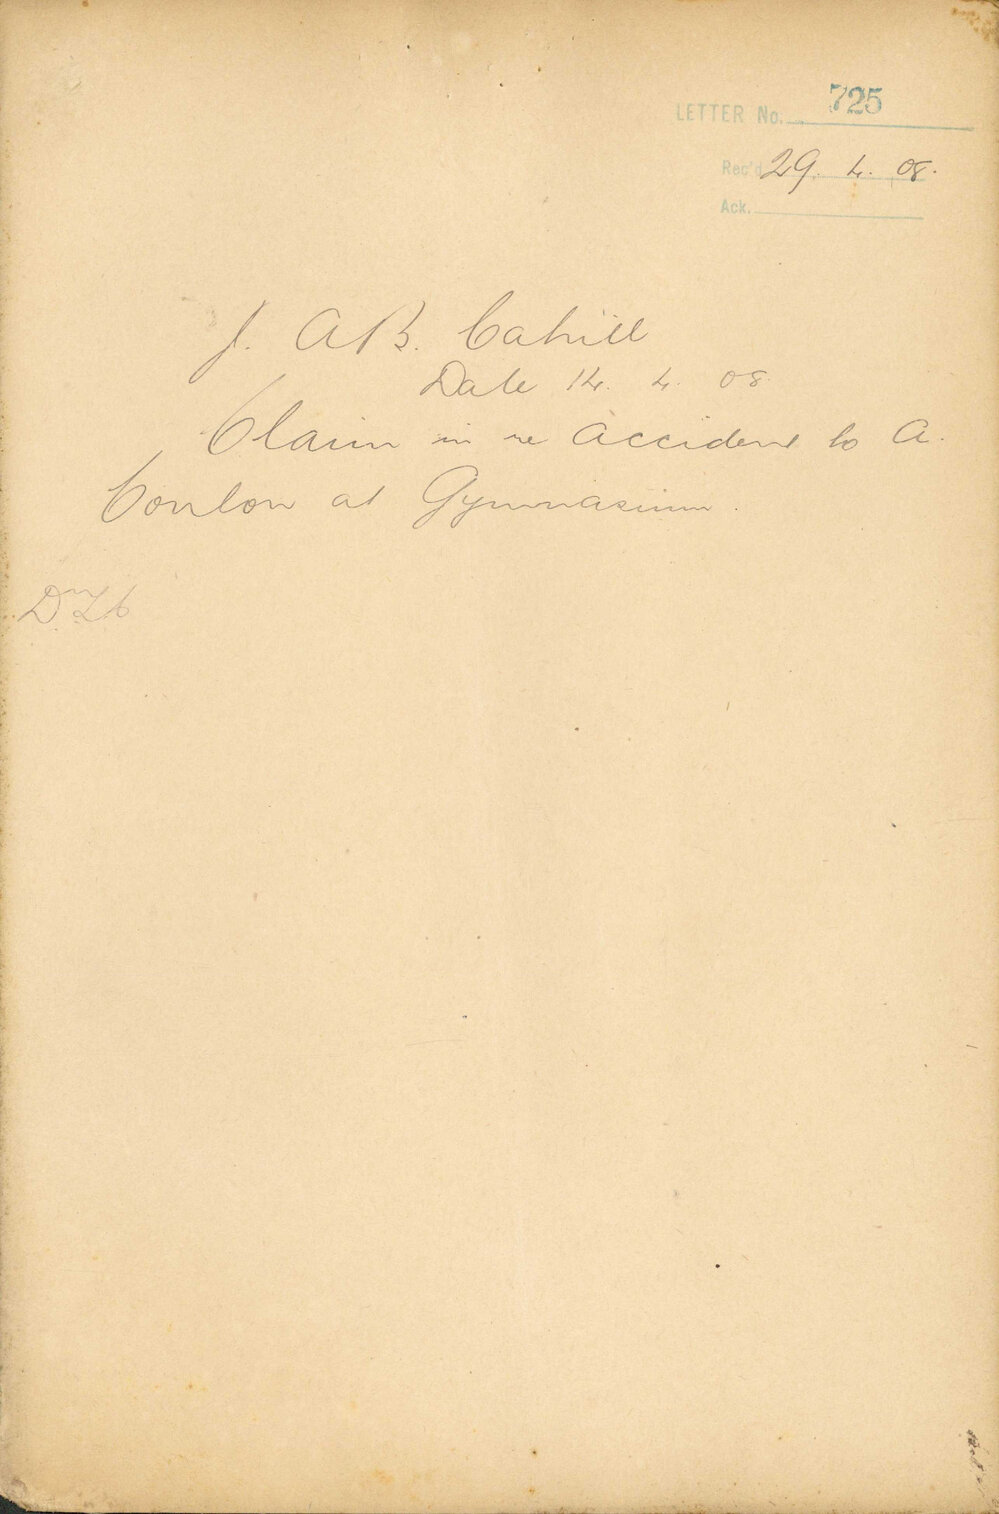 LETTER No. 725
Rec'd 29. 4. 08.
Ack.
J. A. B. Cahill
Date 14. 4. 08
Claim in re Accident to A.
Conlon at Gymnasium.